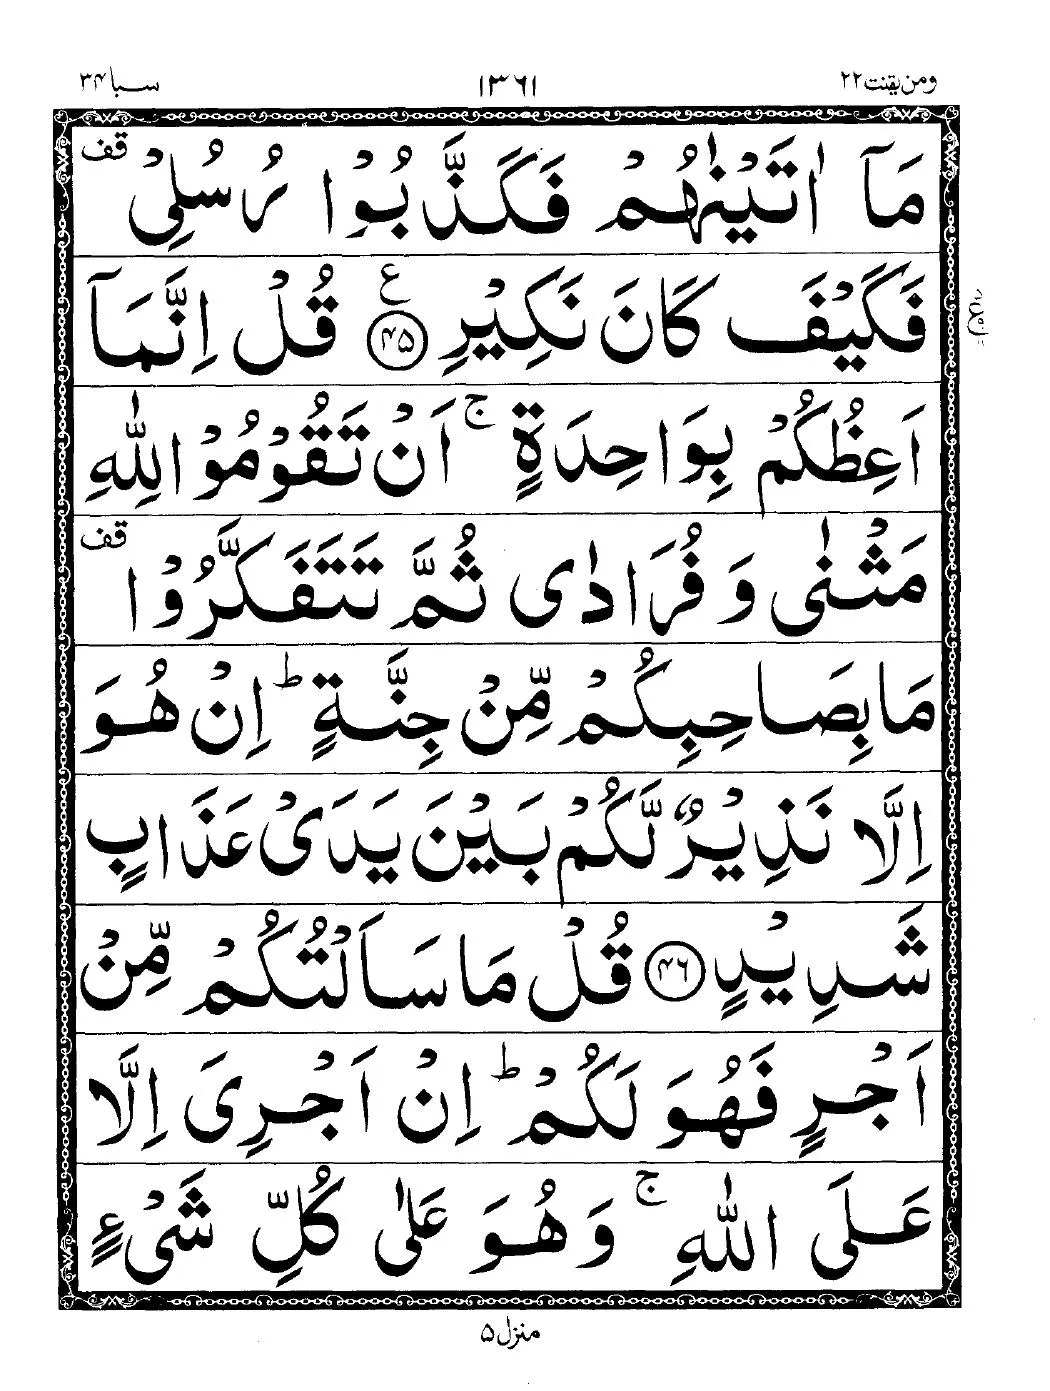 ومن یقنت ۲۲
۱۳۶۱
سبا ۳۴
مَاۤ اٰتَیْنٰهُمْ فَكَذَّبُوْا رُسُلِیْ قف
فَكَیْفَ كَانَ نَكِیْرِ ع ۴۵ قُلْ اِنَّمَاۤ
اَعِظُكُمْ بِوَاحِدَةٍ ج اَنْ تَقُوْمُوْا لِلّٰهِ
مَثْنٰی وَ فُرَادٰی ثُمَّ تَتَفَكَّرُوْا قف
مَا بِصَاحِبِكُمْ مِّنْ جِنَّةٍ ط اِنْ هُوَ
اِلَّا نَذِیْرٌ لَّكُمْ بَیْنَ یَدَیْ عَذَابٍ
شَدِیْدٍ ۴۶ قُلْ مَا سَاَلْتُكُمْ مِّنْ
اَجْرٍ فَهُوَ لَكُمْ ط اِنْ اَجْرِیَ اِلَّا
عَلَی اللّٰهِ ج وَ هُوَ عَلٰی كُلِّ شَیْءٍ
منزل ۵